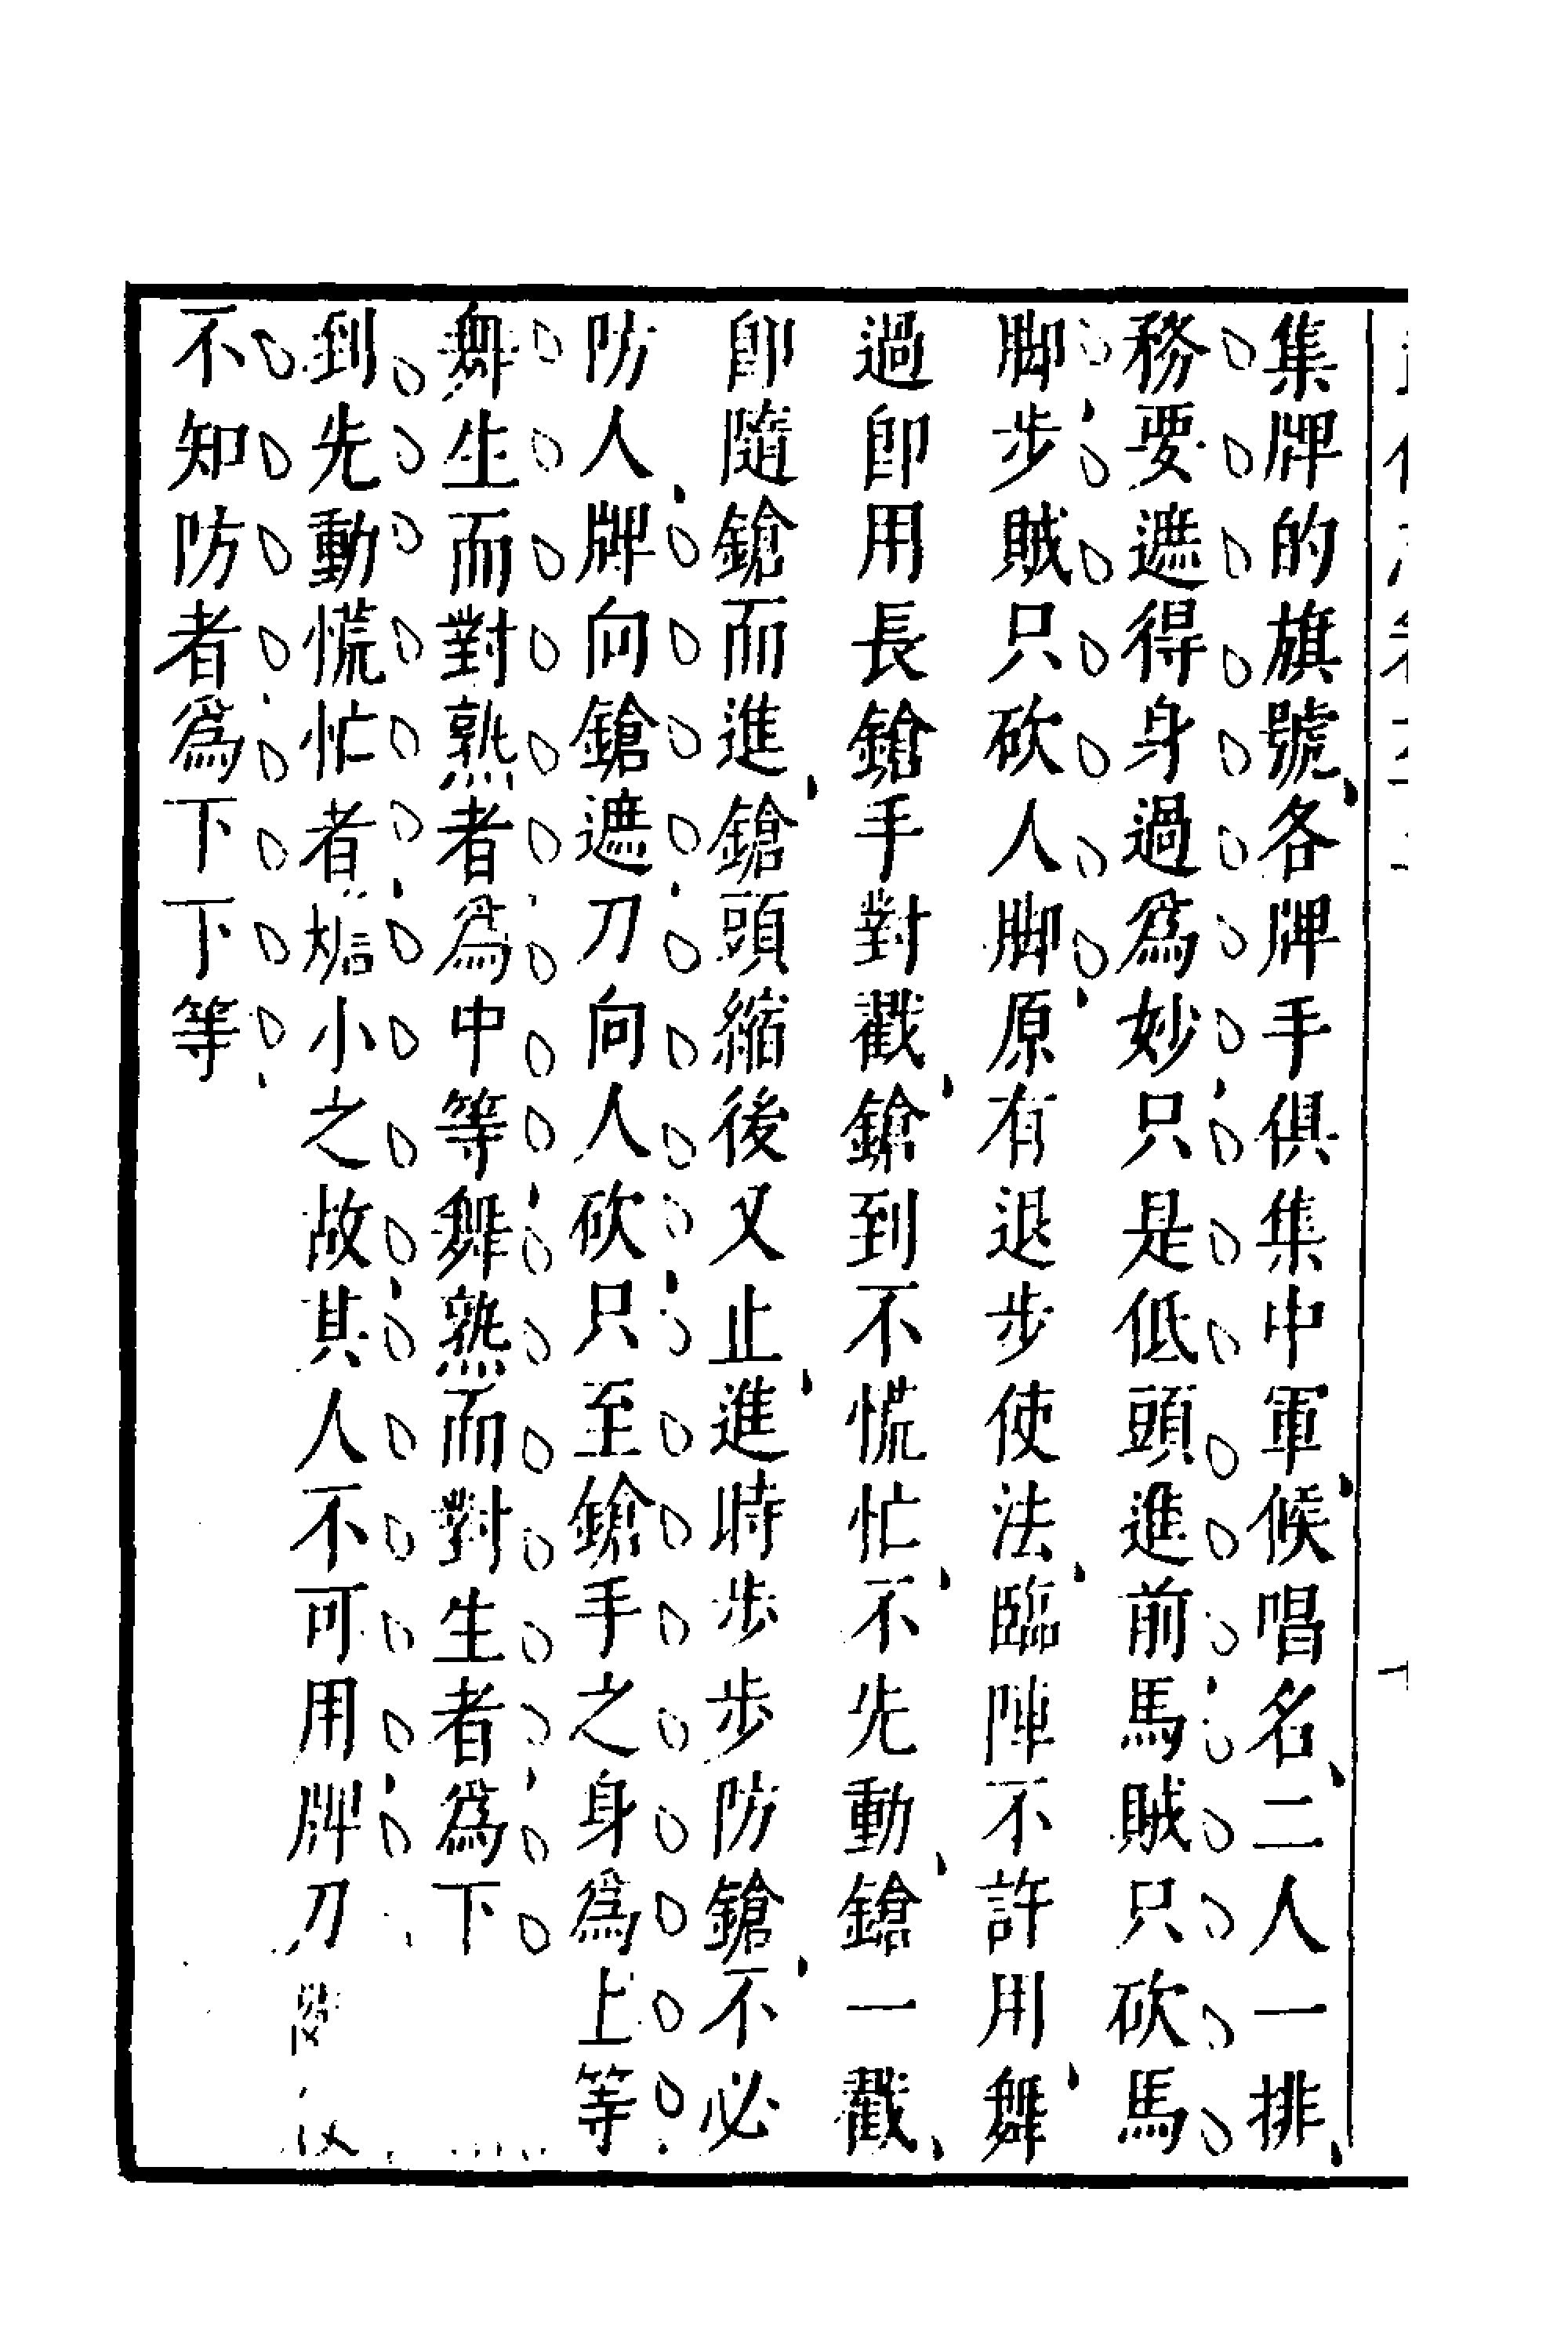 集牌的旗號各牌手俱集中軍候唱名二人一排
務要遮得身過爲妙只是低頭進前馬賊只砍馬
脚步賊只砍人脚原有退步使法臨陣不許用舞
過卽用長鎗手對戳鎗到不慌忙不先動鎗一戳
卽隨鎗而進鎗頭縮後又止進時步步防鎗不必
防人牌向鎗遮刀向人砍只至鎗手之身爲上等
舞生而對熟者爲中等舞熟而對生者爲下
到先動慌忙者小之故其人不可用牌刀
不知防者爲下下等